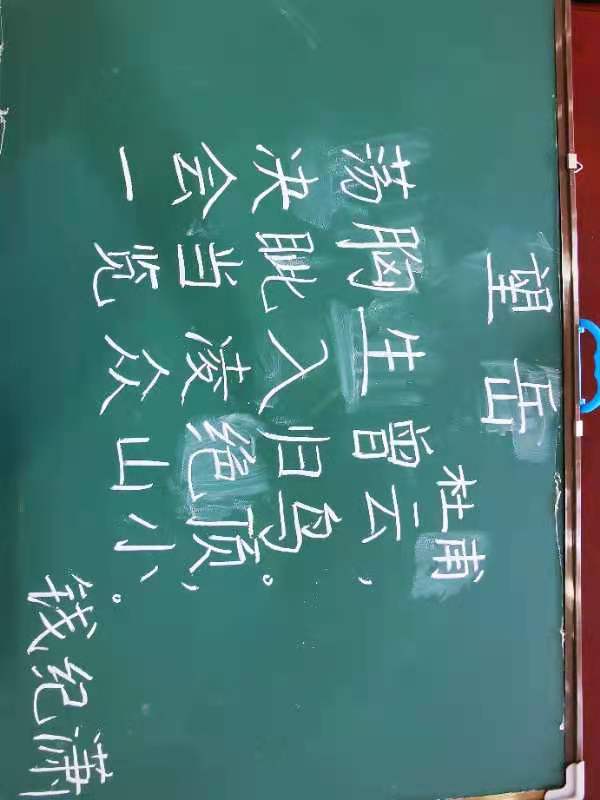 望岳
杜甫
荡胸生曾云,
决眦入归鸟。
会当凌绝顶,
一览众山小。
钱纪潇